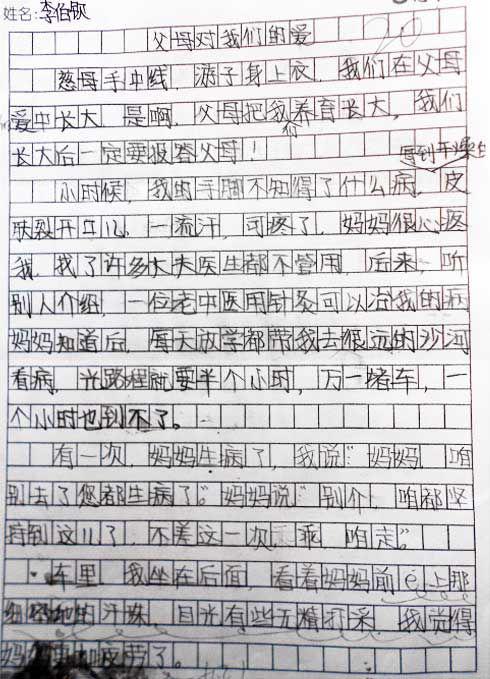 姓名:李伯钦
父母对我们的爱
20
慈母手中线，游子身上衣，我们在父母
爱中长大，是啊，父母把我们养育长大，我们
长大后一定要报答父母！
每到干燥
小时候，我的手脚不知得了什么病，皮
肤裂开口儿。一流汗，可疼了，妈妈很心疼
我，找了许多大夫医生都不管用，后来，听
别人介绍，一位老中医用针灸可以治我的病
妈妈知道后，每天放学都带我去很远的沙河
看病，光路程就要半个小时，万一堵车，一
个小时也到不了。
有一次，妈妈生病了，我说“妈妈，咱
别去了您都生病了。”妈妈说“别介，咱都坚
持到这儿了，不差这一次，乖，咱走。”
车里，我坐在后面，看着妈妈前e上那
的汗珠，目光有些无精打采，我觉得
妈妈更加疲劳了。